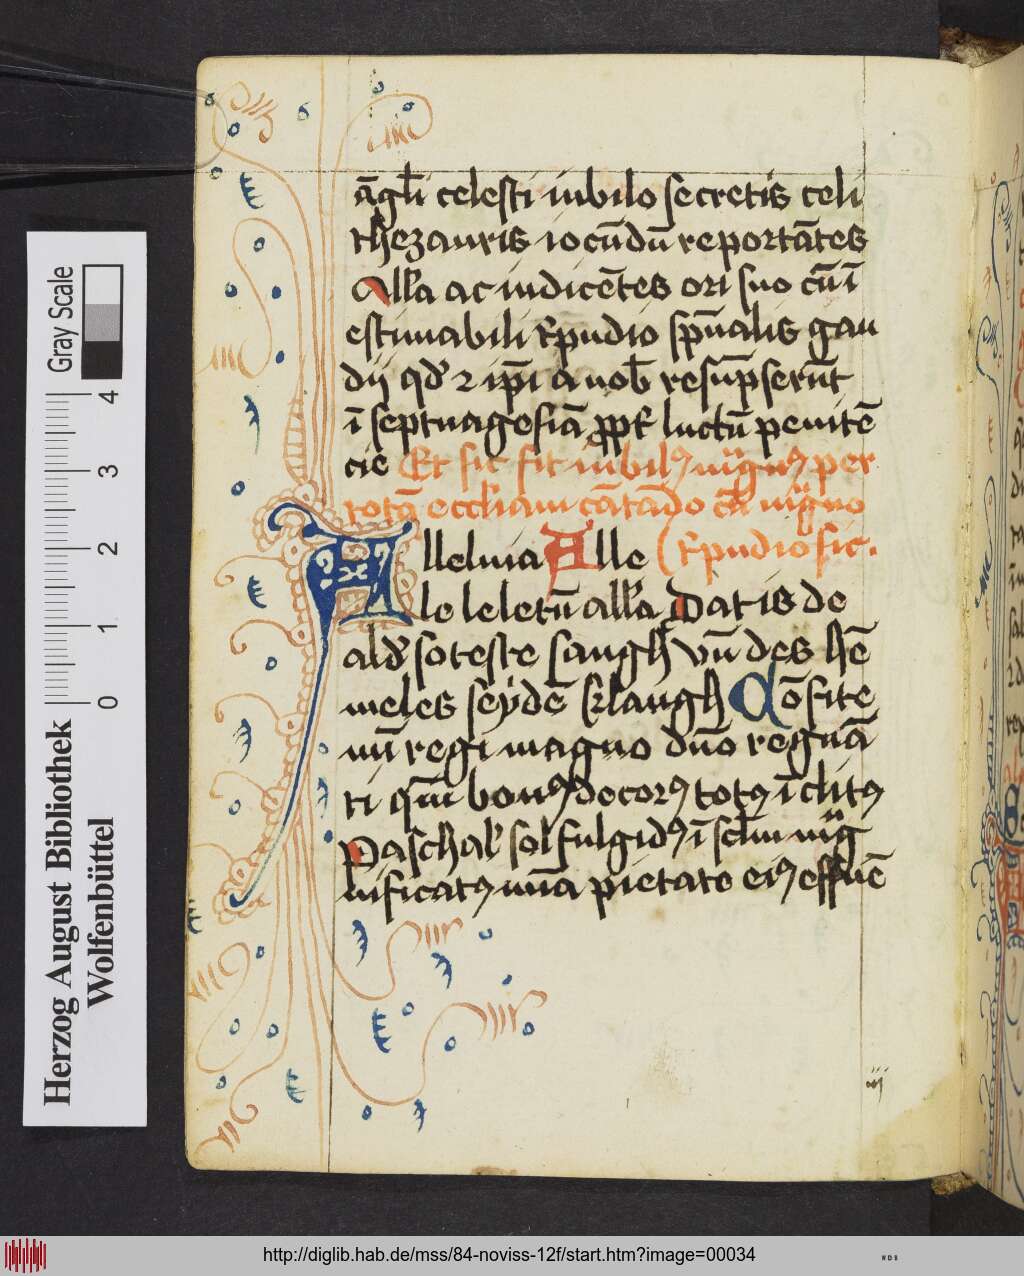 āgl̄i celesti iubilo secretis celi
thezauris iocūdū reportātes
All'a ac indicētes ori suo cū ī
estimabili t̕pudio sp̄ualis gau
dij qd' 2 ip̄i a nob̄ resūpserūt
ī septuagesīa ꝓpt̕ luctū penitē
cie Et sic fit iubilꝰ per
totā eccl̄iam cātādo cū
llelnia Alle (t̕pudio sic.
le leletū all'a Dat is de
ald' soteste sangh vn̄ des hē
meles seyde klangh Cōfite
mī regi magno dn̄o regnā
ti qm̄ bonꝰ decorꝰ totꝰ īclitꝰ
Paschal' sol fulgidꝰ ī sc̄lm mg̅
nificatꝰ īmēa pietate eiꝰ effluē
iij
Herzog August Bibliothek
Wolfenbüttel
0 1 2 3 4
Gray Scale
http://diglib.hab.de/mss/84-noviss-12f/start.htm?image=00034